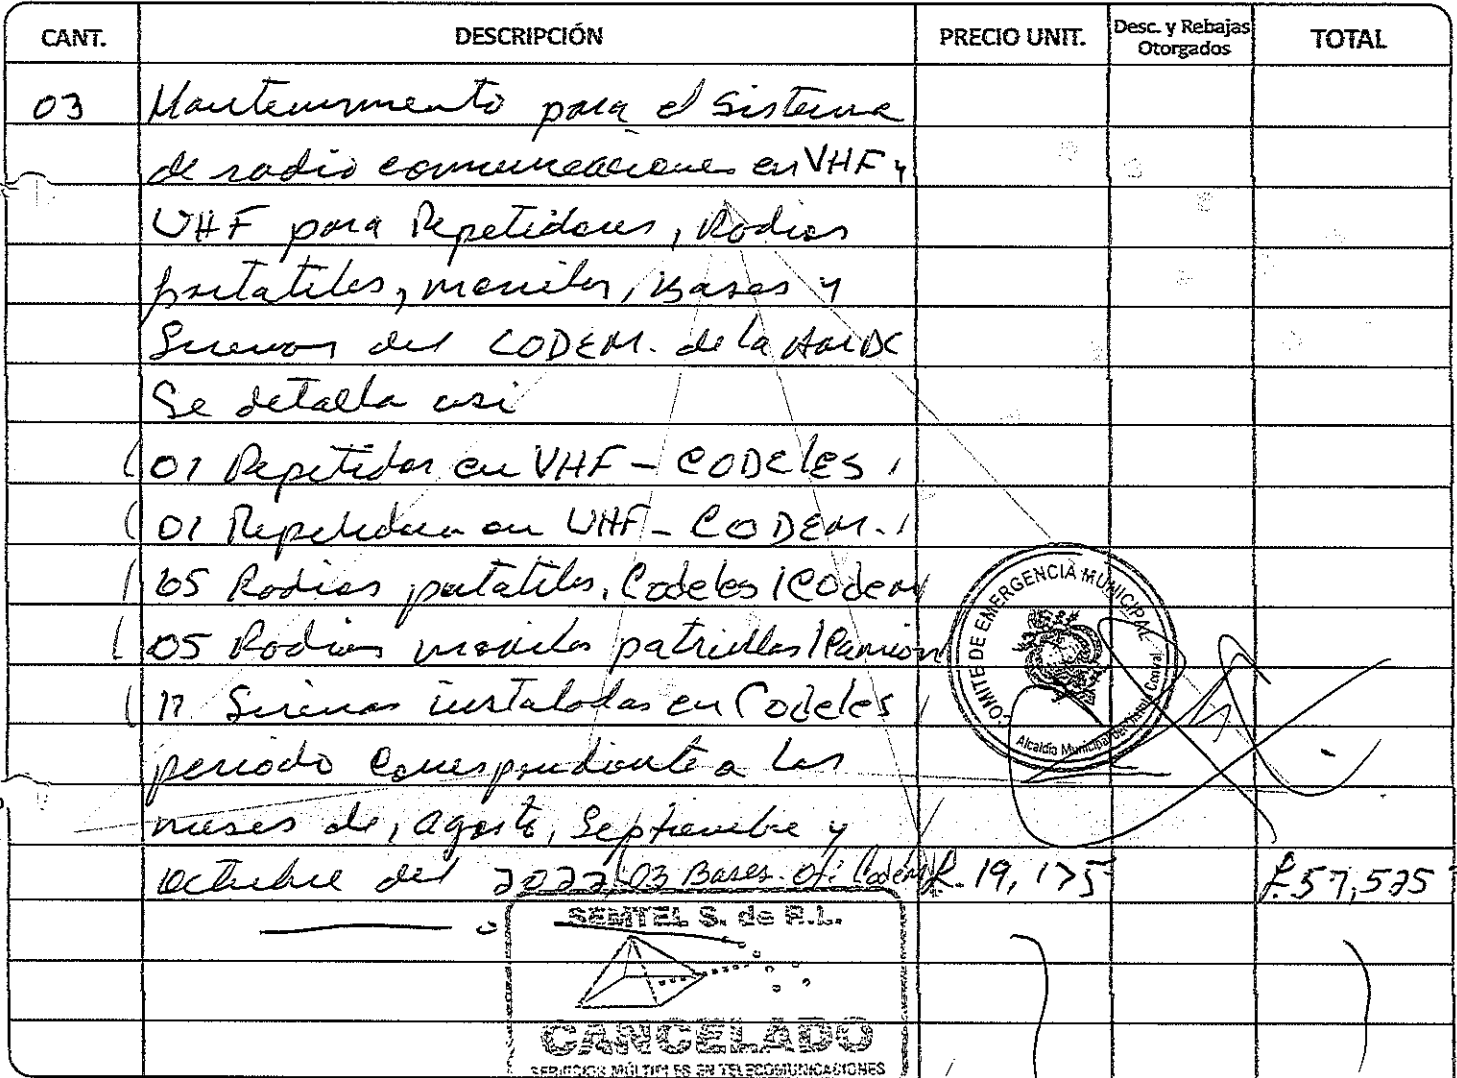 CANT. DESCRIPCIÓN PRECIO UNIT. Desc. y Rebajas Otorgados TOTAL
03 Mantenimiento para el Sistema
de radio comunicaciones en VHF y
UHF para Repetidores, Radios
portatiles, moviles, Bases y
Sirenas del CODEM. de la AMDC
Se detalla asi
(01 Repetidor en VHF - CODELES /
(01 Repetidora en UHF - CODEM. /
(05 Radios portatiles, Codeles /Codem
(05 Radios moviles patrullas /Camion
(17 Sirenas instaladas en Codeles /
periodo Correspondiente a los
meses de, agosto, Septiembre y
Octubre del 2022 (03 Bases. Ofi Codem L. 19,175 L.57,525
SEMTEL S. de R.L.
CANCELADO
SERVICIOS MÚLTIPLES EN TELECOMUNICACIONES
COMITE DE EMERGENCIA MUNICIPAL
Alcaldía Municipal del Distrito Central